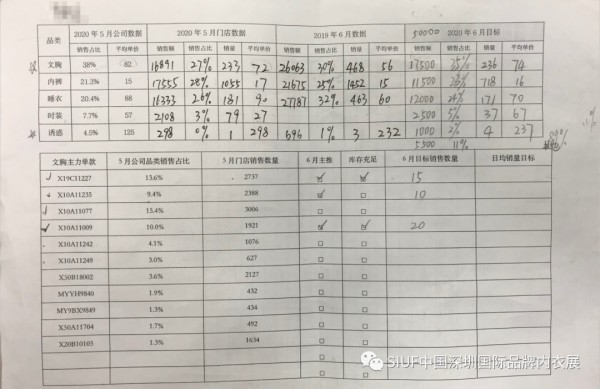 品类 2020年5月公司数据 2020年5月门店数据 2019年6月数据 50000 2020年6月目标
销售占比 平均单价 销售额 销售占比 销量 平均单价 销售额 销售占比 销量 平均单价 销售额 销售占比 销量 平均单价
文胸 38% 82 16891 27% 233 72 26063 30% 468 56 17500 35% 236 74
内裤 21.3% 15 17555 28% 1055 17 21675 25% 1452 15 11500 23% 718 16
睡衣 20.4% 88 16333 26% 181 90 27787 32% 463 60 12000 24% 171 70
时装 7.7% 57 2108 3% 79 27 2500 5% 37 67
诱惑 4.5% 125 298 0% 1 298 696 1% 3 232 1000 2% 4 237
5500 11%
文胸主力单款 5月公司品类销售占比 5月门店销售数量 6月主推 库存充足 6月目标销售数量 日均销量目标
X19C11227 13.6% 2737 15
X10A11235 9.4% 2388 10
X10A11077 15.4% 3006
X10A11009 10.0% 1921 20
X10A11242 4.1% 1076
X10A11249 3.0% 627
X30B18002 3.6% 2127
MYYH9840 1.9% 432
MY9BX9849 1.3% 434
X30A11704 1.7% 492
X20B10103 1.3% 1634
SIUF中国深圳国际品牌内衣展